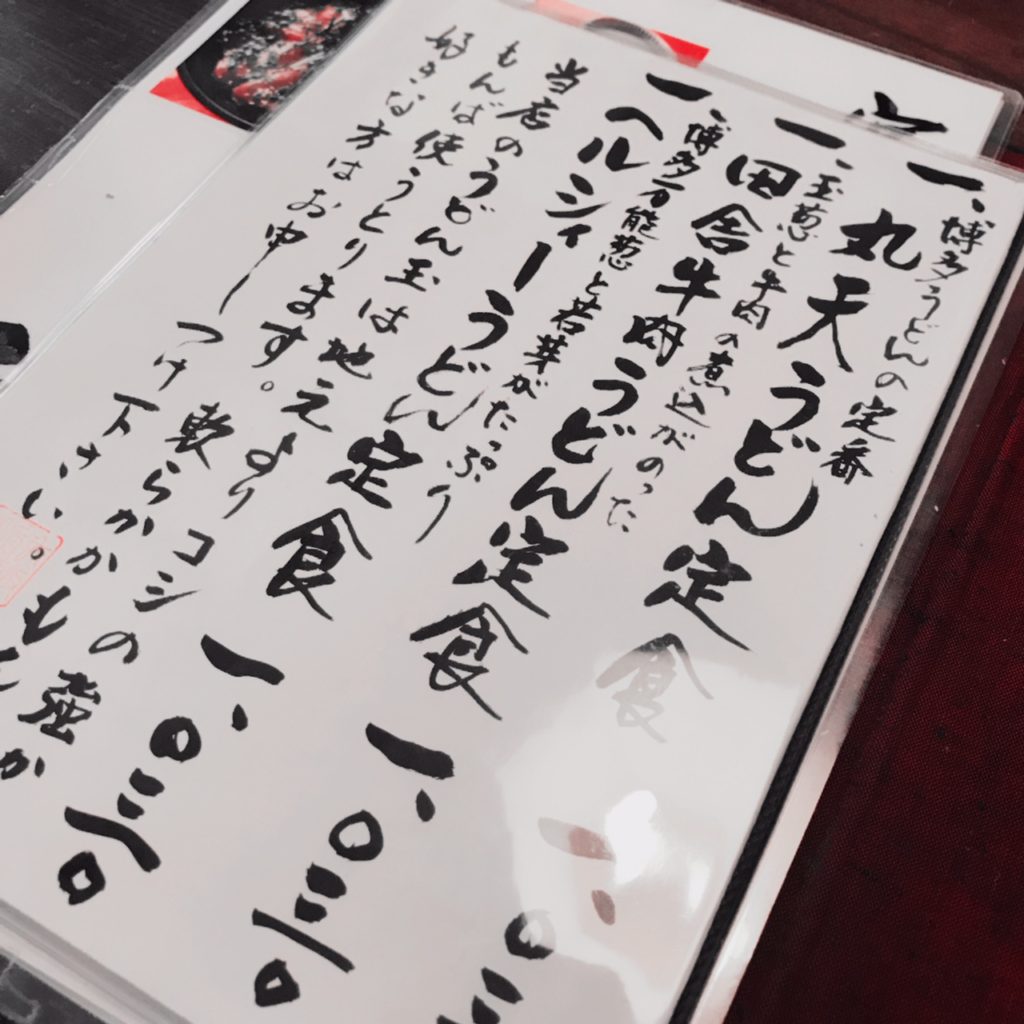 一、博多うどんの定番
丸天うどん定食 一、〇三
一、玉葱と牛肉の煮込がのった
田舎牛肉うどん定食 一、〇三〇
一、博多万能葱と若芽がたっぷり
ヘルシィーうどん定食 一、〇三〇
当店のうどん玉は地元よりコシの強か
もんば使うとります。軟らかかもん
好きな方はお申しつけ下さい。